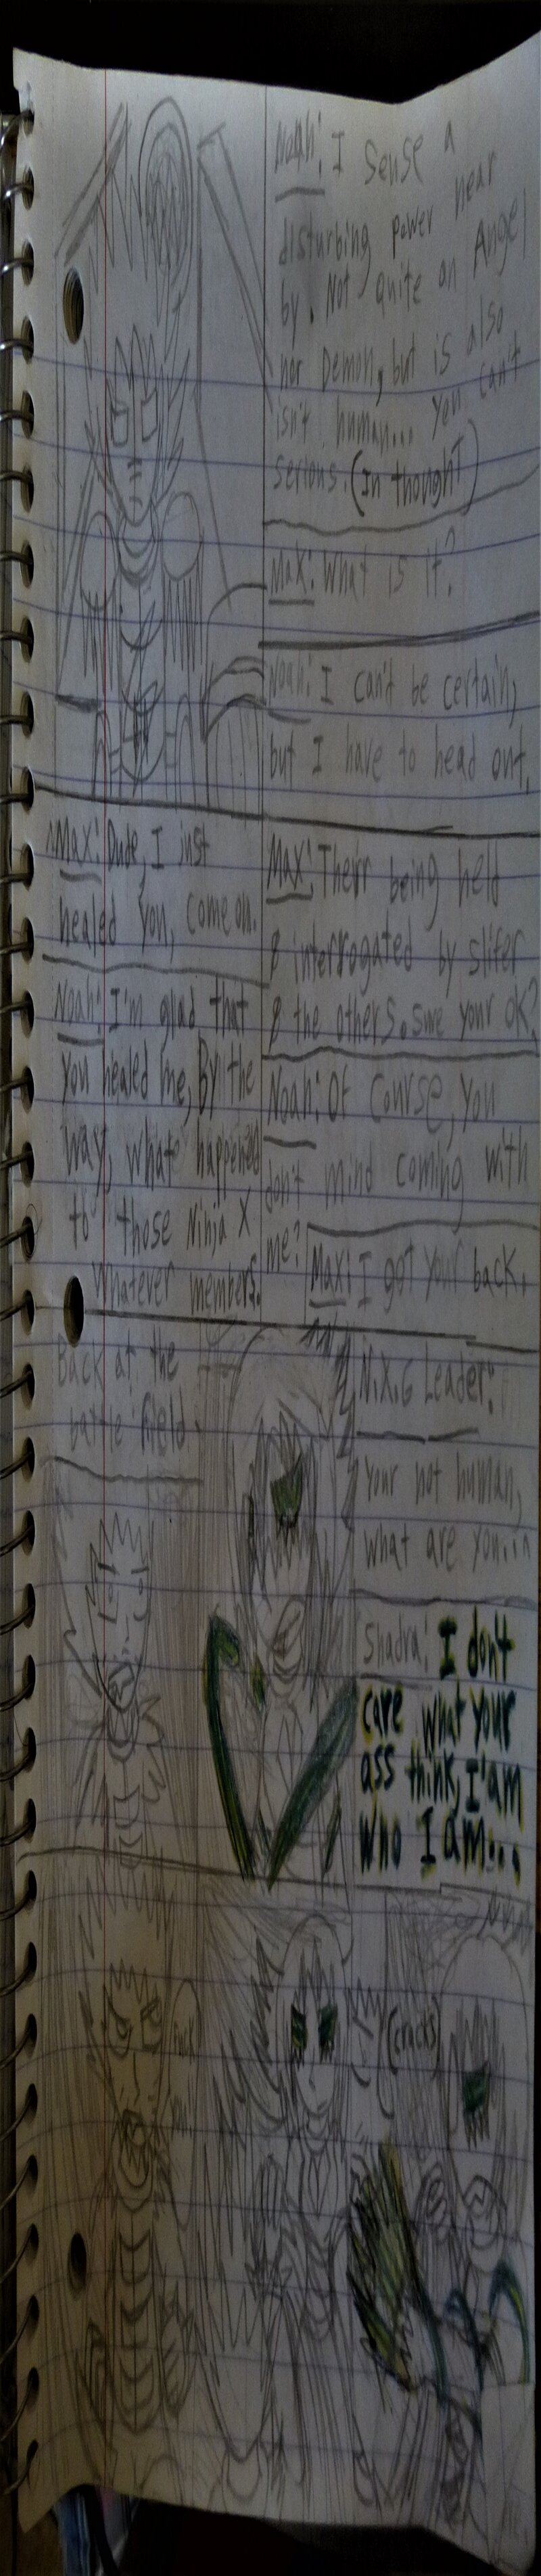 Noah: I sense a
disturbing power near
by. Not quite an Angel
nor Demon, but is also
isn't human... You can't
serious. (In thought)
Max: What is it?
Noah: I can't be certain,
but I have to head out.
Max: Dude, I just
healed you, come on.
Noah: I'm glad that
you healed me, By the
way, what happened
to those Ninja X
Whatever members.
Max: Their being held
& interrogated by slifer
& the others. sure your OK?
Noah: Of course, you
don't mind coming with
me?
Max: I got your back.
Back at the
battle field
N.X.G Leader:
Your not human,
what are you...
Shadra: I don't
care what your
ass think, I'am
who I am...
(cracks)